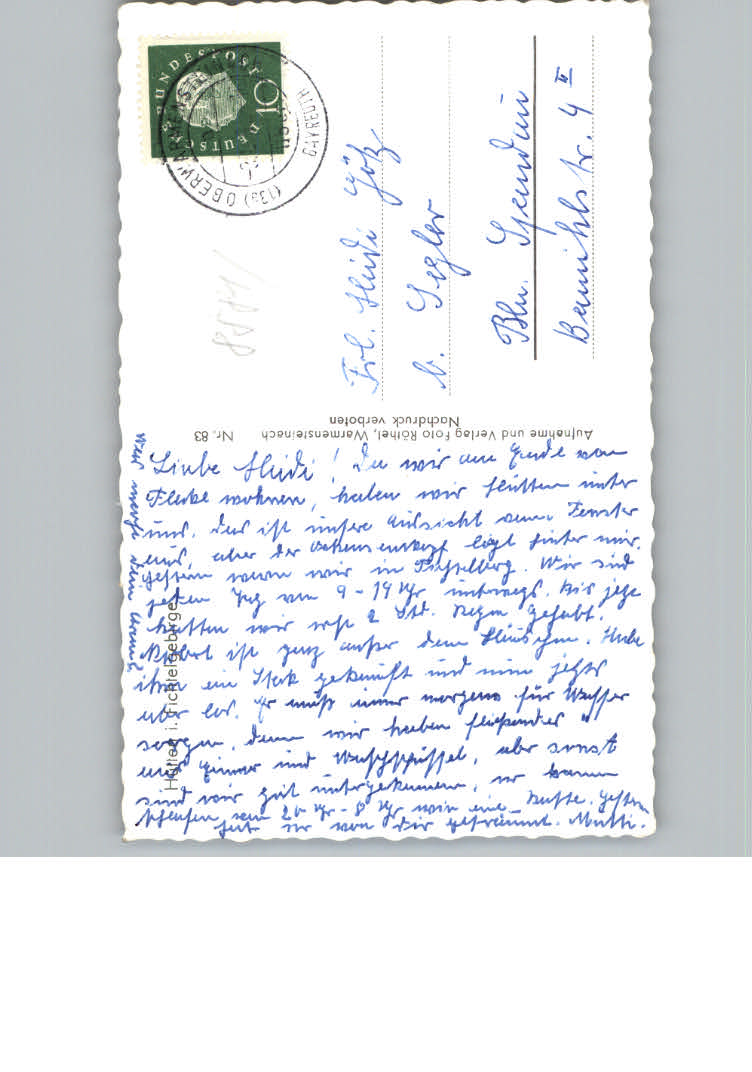 DEUTSCHE BUNDESPOST
10
(13a) OBERWARMENSTEINACH
BAYREUTH
Frl. Heidi Götz
b. Segler
Bln. Spandau
Aufnahme und Verlag Foto Röthel, Warmensteinach Nr. 83
Nachdruck verboten
Liebe Heidi! Da wir am Ende von
Fleckl wohnen, haben wir Hütten unter
uns. Das ist unsere Aussicht vom Fenster
aus, aber der Ochsenkopf liegt hinter mir.
Gestern waren wir in Fichtelberg. Wir sind
jeden Tag von 9 - 19 Uhr unterwegs. Bis jetzt
hatten wir erst 2 Std. Regen gehabt.
Robert ist ganz außer dem Häuschen. Habe
ihm ein Stock gekauft und nun jetzt
aber los. Er muß immer morgens für Wasser
sorgen, denn wir haben "fließendes"
aus Eimer und Waschschüssel, aber sonst
sind wir gut untergekommen,
schlafen von 20 Uhr - 8 Uhr wie eine Ratte. Gestern
hat er von Dir geträumt. Mutti.
Was macht Dein
i. Fichtelgebirge